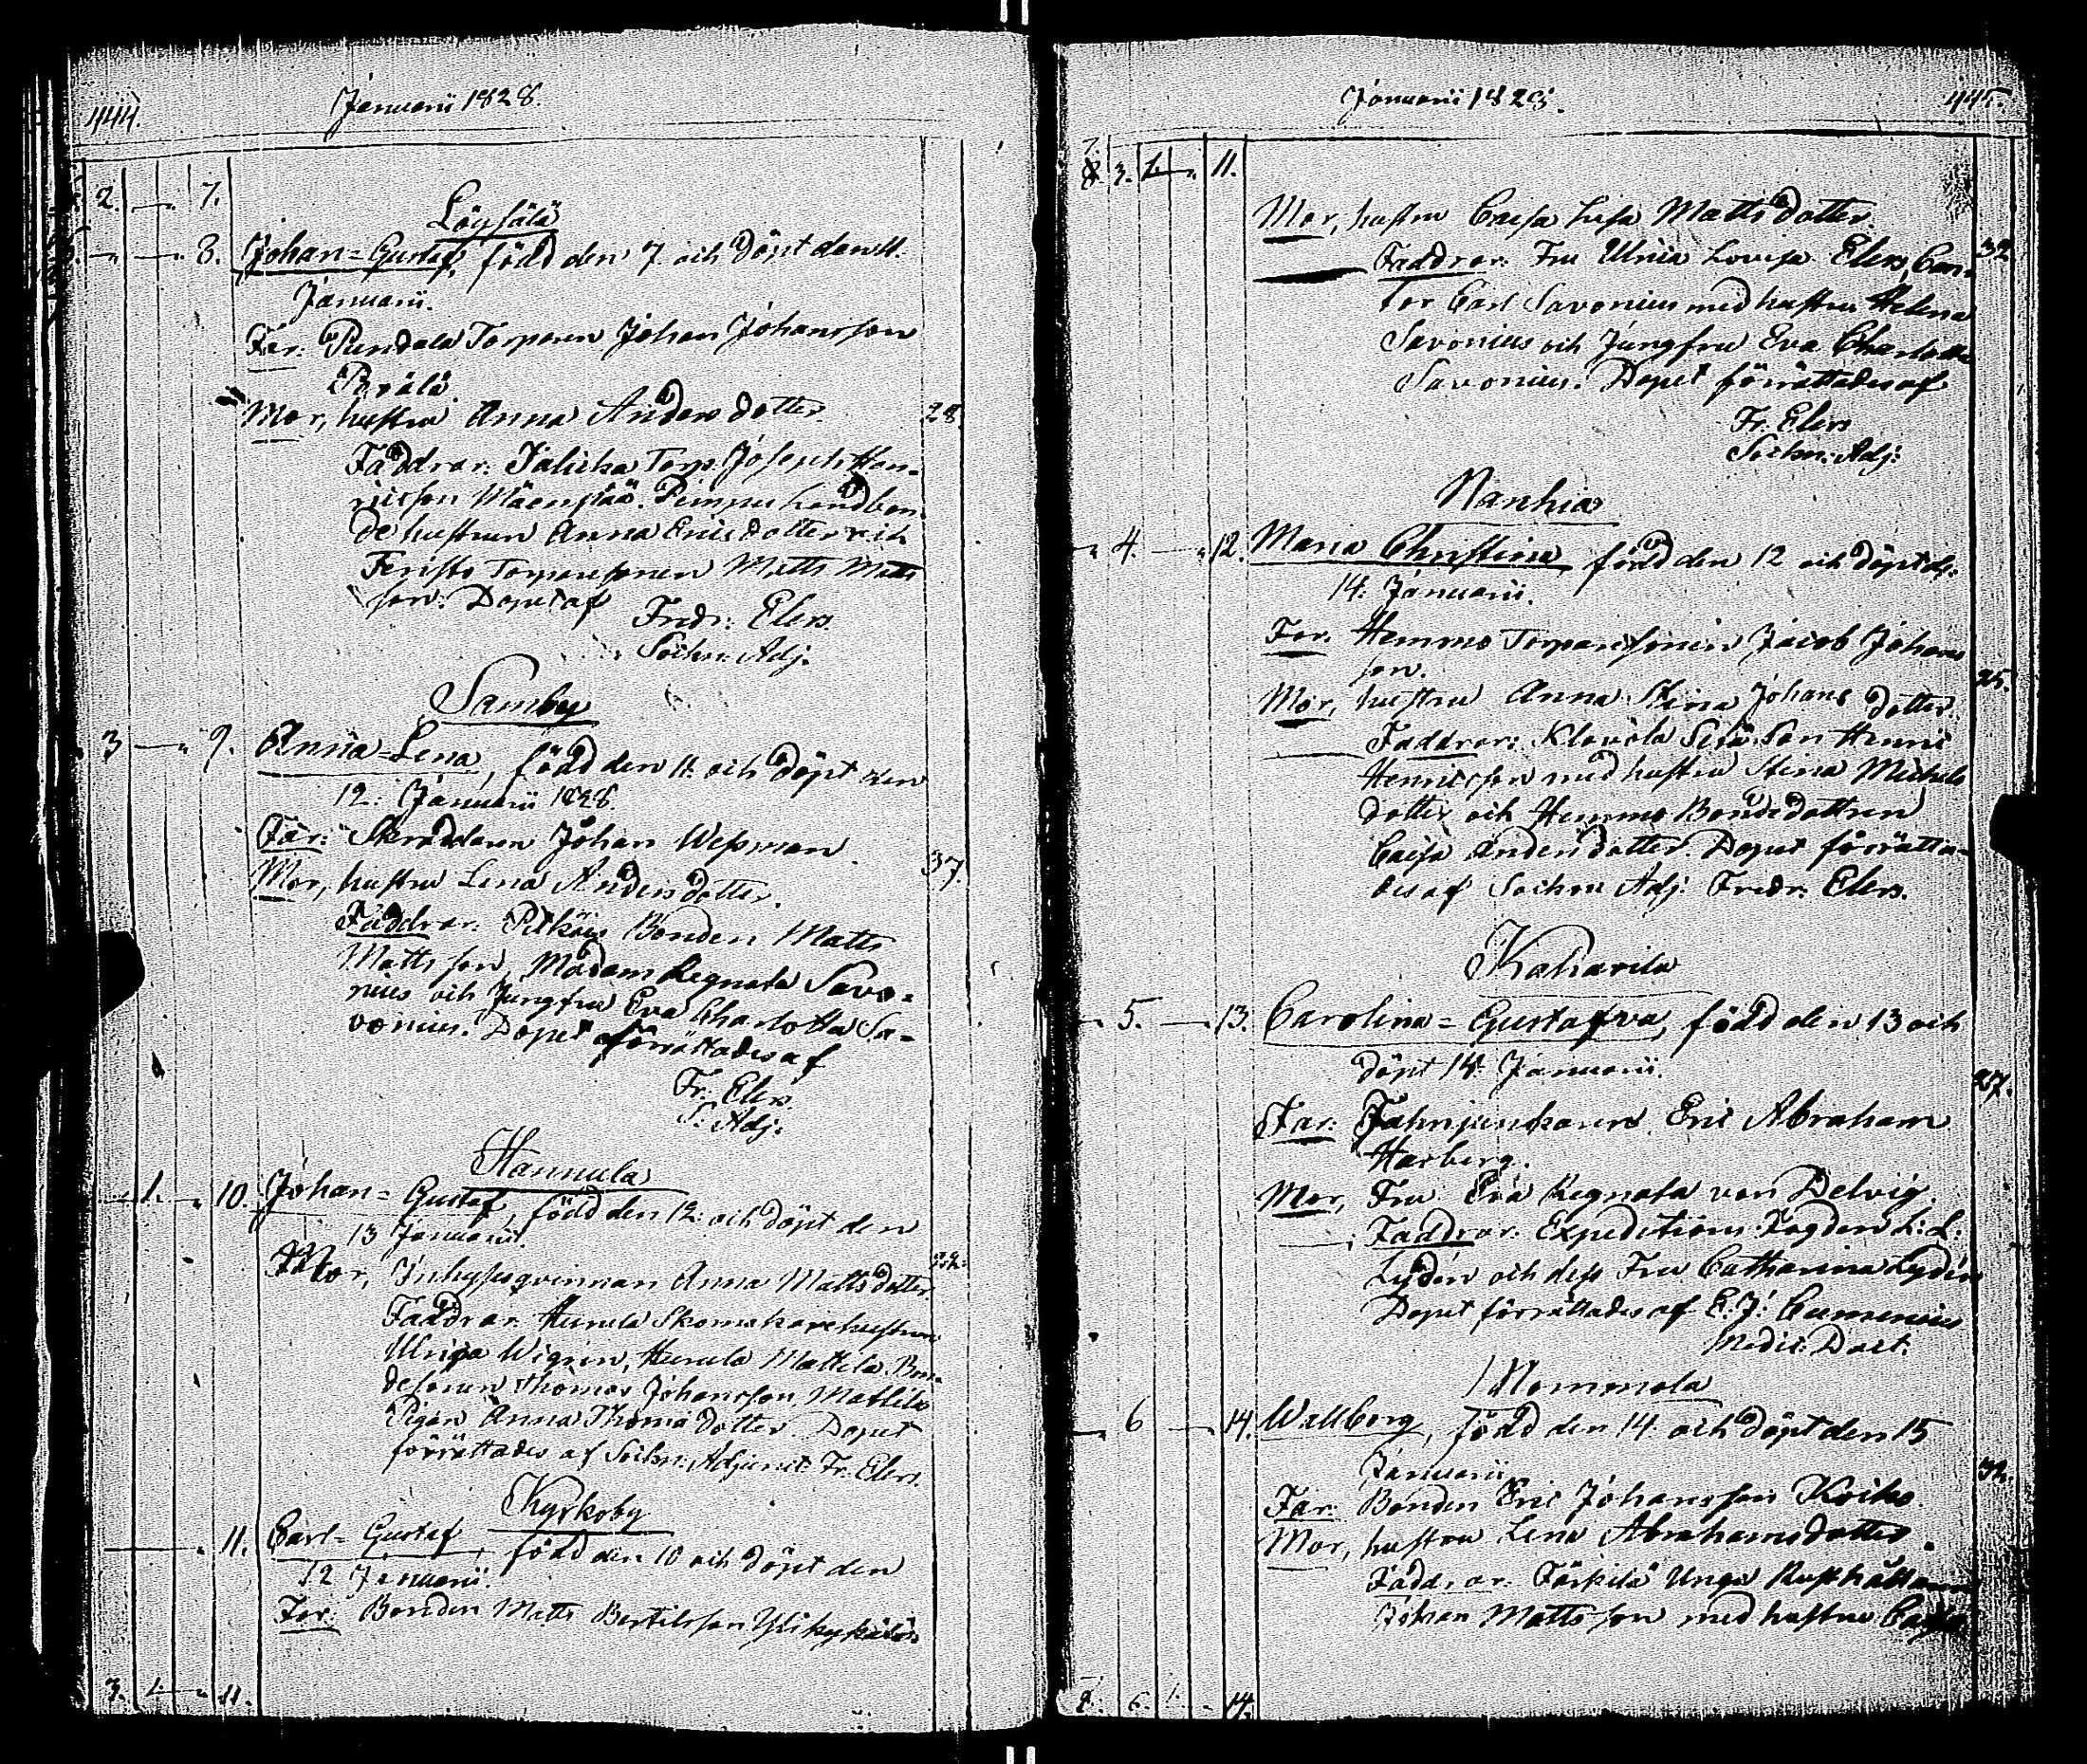 444 Januarii 1828.
2. — „ 7.
Löysälä
„ — „ 8. Johan=Gustaf, född den 7 och döpt den 11.
Januarii.
Far: Pundala Torparen Johan Johansson
Perälä.
Mor, hustru Anna Anders dotter. 28
Faddrar: Jalicka Torp. Joseph Hen-
ricsson Mäenpää. Pimpu Landbon-
de hustrun Anna Erics dotter och
Torparesonen Matts Matts
son. Dopet af
Fredr: Elers.
Sockn: Adj.
Samby
3 — „ 9. Anna=Lena, född den 11. och döpt den
12. Januarii 1828.
Far: Skräddaren Johan Wessman.
Mor, hustru Lena Anders dotter. 37.
Faddrar: Pitkäjs Bonden Matts
Matts son, Madam Regnata Savo-
nius och Jungfru Eva Charlotta Sa-
vonius. Dopet förrättades af
Fr: Elers.
S: Adj.
Hannula
„ 1. „ 10. Johan=Gustaf, född den 12. och döpt den
13 Januarii.
Mor, Inhyses qvinnan Anna Matts dotter.
Faddrar: Hurula Skomakarehustrun
Ulrica Wigrin, Hurula Mattila Bon-
desonen Thomas Johansson, Mattila
Pigan Anna Thomas dotter. Dopet
förrättades af Sockn: Adjunct: Fr: Elers.
Kyrkoby
„ 11. Carl=Gustaf, född den 10 och döpt den
12 Januarii.
Far: Bonden Matts Bertilsson Ylikykälä
3. 1. — „ 11.
Januarii 1828. 445.
7.
8. 3. 1. — „ 11.
Mor, hustru Caisa Lisa Matts dotter.
Faddrar: Fru Ulrica Lovisa Elers, Can- 32
tor Carl Savonius med hustru Helena
Savonius och Jungfru Eva Charlotta
Savonius. Dopet förrättades af
Fr: Elers
Sockn: Adj:
Nanhia
„ 4. — „ 12. Maria Christina, född den 12 och döpt d:
14. Januarii.
Far: Hemmo Torparesonen Jacob Johans
son. 25.
Mor, hustru Anna Stina Johans dotter.
Faddrar: Klavola Son Henric
Henricsson med hustru Stina Michels
dotter och Hemmo Bondedottren
Caisa Anders dotter. Dopet förrätta-
des af Sockne Adj: Fredr: Elers.
Kaharila
„ 5. — „ 13. Carolina=Gustafva, född den 13 och
döpt 14. Januarii. 27.
Far: Fahnjunkaren Eric Abraham
Harberg.
Mor, Fru Eva Regnata von Delvig.
Faddrar: Expeditions Fogden L: L:
Lydén och dess Fru Catharina Lydén
Dopet förrättades af E. J: Cumenius
Medic: Doct.
Nommola
„ 6 — „ 14. Wallborg, född den 14. och döpt den 15
Januarii. 32.
Far: Bonden Eric Johansson Koiko.
Mor, hustru Lena Abrahams dotter.
Faddrar: Färkilä Unga Rusthållaren
Johan Matts son med hustru Caisa
8. 6. 1. „ 14.